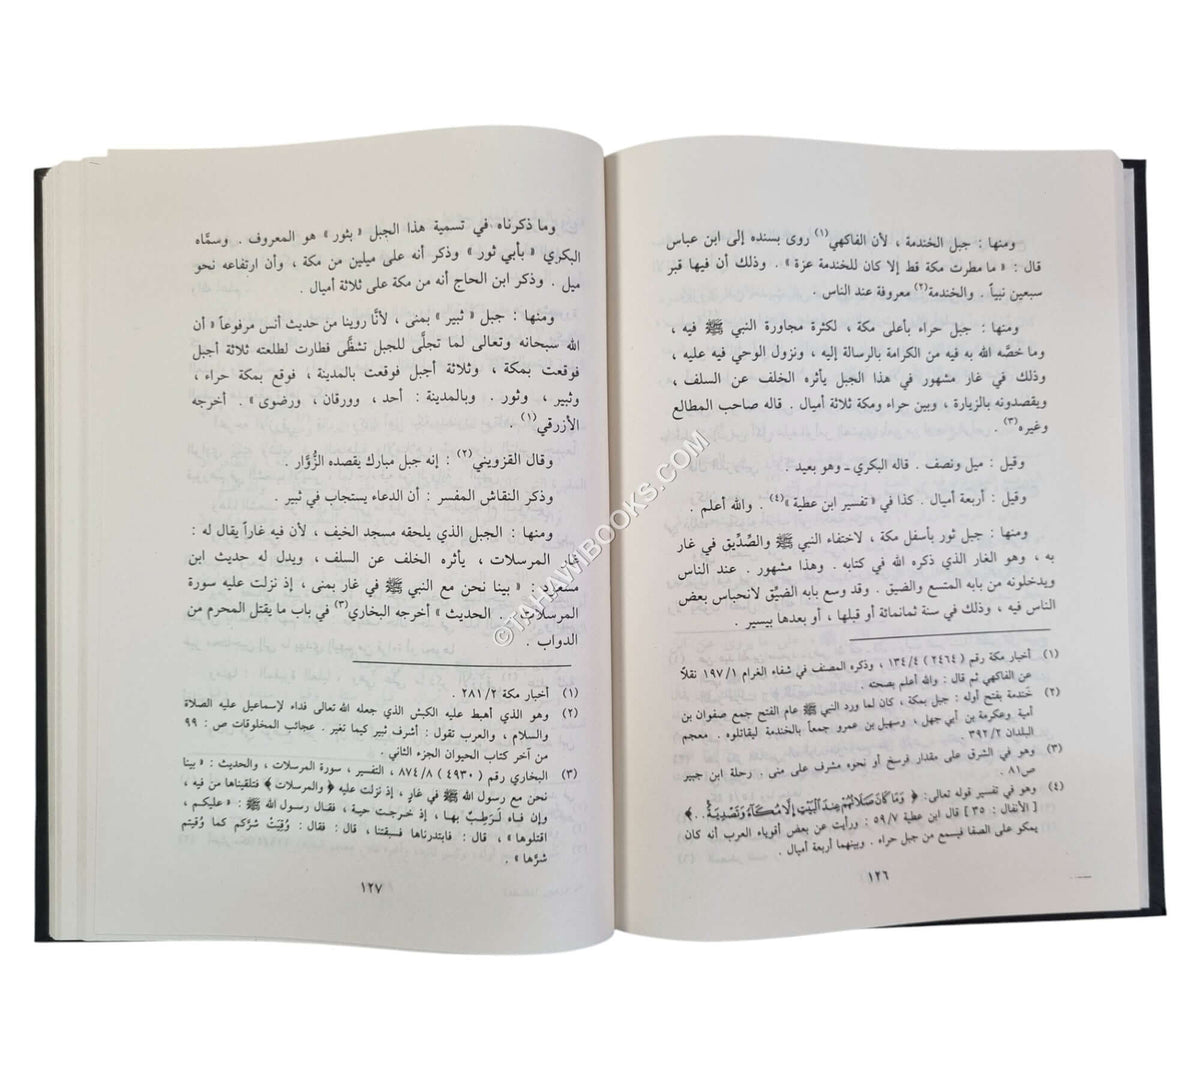 ومنها : جبل الخندمة ، لأن الفاكهي(١) روى بسنده إلى ابن عباس
قال : « ما مطرت مكة قط إلا كان للخندمة عزة » . وذلك أن فيها قبر
سبعين نبياً . والخندمة(٢) معروفة عند الناس .
ومنها : جبل حراء بأعلى مكة ، لكثرة مجاورة النبي ﷺ فيه ،
وما خصَّه الله به فيه من الكرامة بالرسالة إليه ، ونزول الوحي فيه عليه ،
وذلك في غار مشهور في هذا الجبل يأثره الخلف عن السلف ،
ويقصدونه بالزيارة ، وبين حراء ومكة ثلاثة أميال . قاله صاحب المطالع
وغيره(٣) .
وقيل : ميل ونصف . قاله البكري ـ وهو بعيد .
وقيل : أربعة أميال . كذا في « تفسير ابن عطية »(٤) . والله أعلم .
ومنها : جبل ثور بأسفل مكة ، لاختفاء النبي ﷺ والصِّدِّيق في غار
به ، وهو الغار الذي ذكره الله في كتابه . وهذا مشهور . عند الناس
ويدخلونه من بابه المتسع والضيق . وقد وسع بابه الضيّق لانحباس بعض
الناس فيه ، وذلك في سنة ثمانمائة أو قبلها ، أو بعدها بيسير .
(١) أخبار مكة رقم ( ٢٤٦٤ ) ١٣٤/٤ ، وذكره المصنف في شفاء الغرام ١٩٧/١ نقلاً
عن الفاكهي ثم قال : والله أعلم بصحته .
(٢) خَندمة بفتح أوله : جبل بمكة ، كان لما ورد النبي ﷺ عام الفتح جمع صفوان بن
أمية وعكرمة بن أبي جهل ، وسهيل بن عمرو جمعاً بالخندمة ليقاتلوه . معجم
البلدان ٣٩٢/٢ .
(٣) وهو في الشرق على مقدار فرسخ أو نحوه مشرف على منى . رحلة ابن جبير
ص٨١ .
(٤) وهو في تفسير قوله تعالى: ﴿ وَمَا كَانَ صَلَاتُهُمْ عِندَ الْبَيْتِ إِلَّا مُكَاءً وَتَصْدِيَةً .. ﴾
[ الأنفال : ٣٥ ] قال ابن عطية ٥٩/٧ : ورأيت عن بعض أقوياء العرب أنه كان
يمكو على الصفا فيسمع من جبل حراء . وبينهما أربعة أميال .
١٢٦
وما ذكرناه في تسمية هذا الجبل « بثور » هو المعروف . وسمَّاه
البكري « بأبي ثور » وذكر أنه على ميلين من مكة ، وأن ارتفاعه نحو
ميل . وذكر ابن الحاج أنه من مكة على ثلاثة أميال .
ومنها : جبل « ثبير » بمنى ، لأنَّا روينا من حديث أنس مرفوعاً « أن
الله سبحانه وتعالى لما تجلَّى للجبل تشظَّى فطارت لطلعته ثلاثة أجبل
فوقعت بمكة ، وثلاثة أجبل فوقعت بالمدينة ، فوقع بمكة حراء ،
وثبير ، وثور . وبالمدينة : أحد ، وورقان ، ورضوى » . أخرجه
الأزرقي(١) .
وقال القزويني(٢) : إنه جبل مبارك يقصده الزُّوَّار .
وذكر النقاش المفسر : أن الدعاء يستجاب في ثبير .
ومنها : الجبل الذي يلحقه مسجد الخيف ، لأن فيه غاراً يقال له :
غار المرسلات ، يأثره الخلف عن السلف ، ويدل له حديث ابن
مسعود : « بينا نحن مع النبي ﷺ في غار بمنى ، إذ نزلت عليه سورة
المرسلات . الحديث » أخرجه البخاري(٣) في باب ما يقتل المحرم من
الدواب .
(١) أخبار مكة ٢٨١/٢ .
(٢) وهو الذي أهبط عليه الكبش الذي جعله الله تعالى فداء لإسماعيل عليه الصلاة
والسلام ، والعرب تقول : أشرف ثبير كيما نغير . عجائب المخلوقات ص : ٩٩
من آخر كتاب الحيوان الجزء الثاني .
(٣) البخاري رقم ( ٤٩٣٠ ) ٨٧٤/٨ ، التفسير ، سورة المرسلات ، والحديث : « بينا
نحن مع رسول الله ﷺ في غارٍ ، إذ نزلت عليه ﴿ والمرسلات ﴾ فتلقيناها من فيه ،
وإن فـاه لَـرَطِـبٌ بهـا ، إذ خـرجت حيـة ، فقـال رسـول الله ﷺ : « عليكـم ،
اقتلوها » ، قال : فابتدرناها فسبقتنا ، قال : فقال: وُقِيَتْ شرَّكم كما وُقيتم
شرَّها » .
١٢٧
©TAHAWIBOOKS.COM